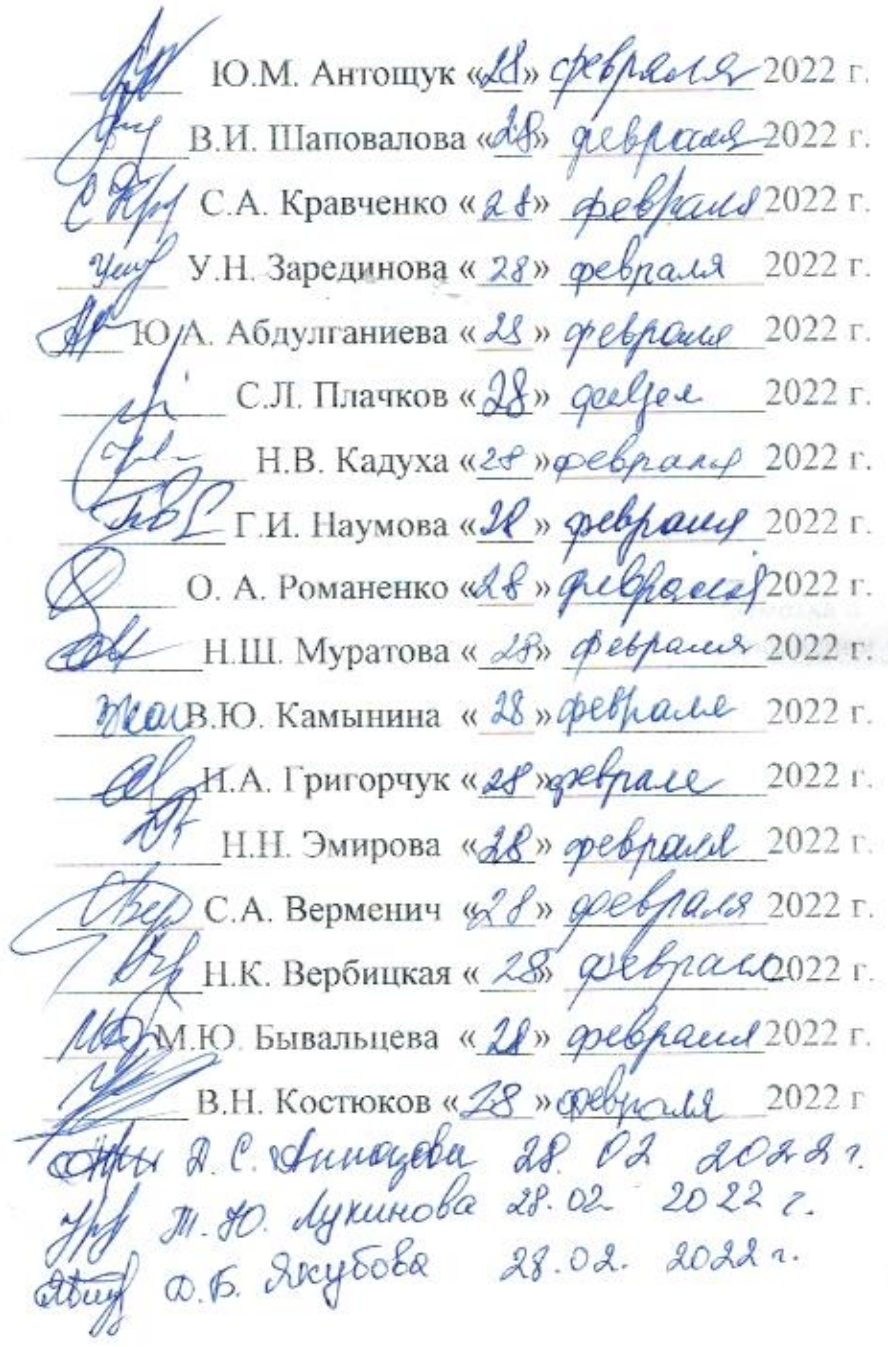 Ю.М. Антощук «28» февраля 2022 г.
В.И. Шаповалова «28» февраля 2022 г.
С.А. Кравченко «28» февраля 2022 г.
У.Н. Зарединова «28» февраля 2022 г.
Ю.А. Абдулганиева «28» февраля 2022 г.
С.Л. Плачков «28» 2022 г.
Н.В. Кадуха «28» февраля 2022 г.
Г.И. Наумова «28» февраля 2022 г.
О. А. Романенко «28» февраля 2022 г.
Н.Ш. Муратова «28» февраля 2022 г.
В.Ю. Камынина «28» февраля 2022 г.
Н.А. Григорчук «28» феврале 2022 г.
Н.Н. Эмирова «28» февраля 2022 г.
С.А. Верменич «28» февраля 2022 г.
Н.К. Вербицкая «28» февраля 2022 г.
М.Ю. Бывальцева «28» февраля 2022 г.
В.Н. Костюков «28» февраля 2022 г
Д. С. 28. 02 2022 г.
Т. Ю. Лукинова 28.02 2022 г.
Д.Б. Якубова 28.02. 2022 г.